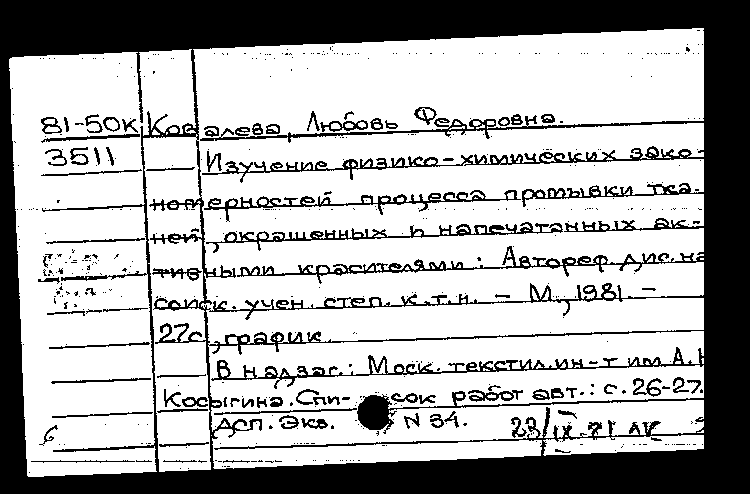 81-50к Ковалева, Любовь Федоровна.
3511 Изучение физико-химических зако-
номерностей процесса промывки тка-
ней, окрашенных и напечатанных ак-
тивными красителями: Автореф. дис. на
соиск. учен. степ. к.т.н. - М., 1981. -
27с., график.
В надзаг.: Моск. текстил. ин-т им А.Н
Косыгина. Спи- сок работ авт.: с. 26-27.
Дсп. Экз. N 34. 23/IX-81
6